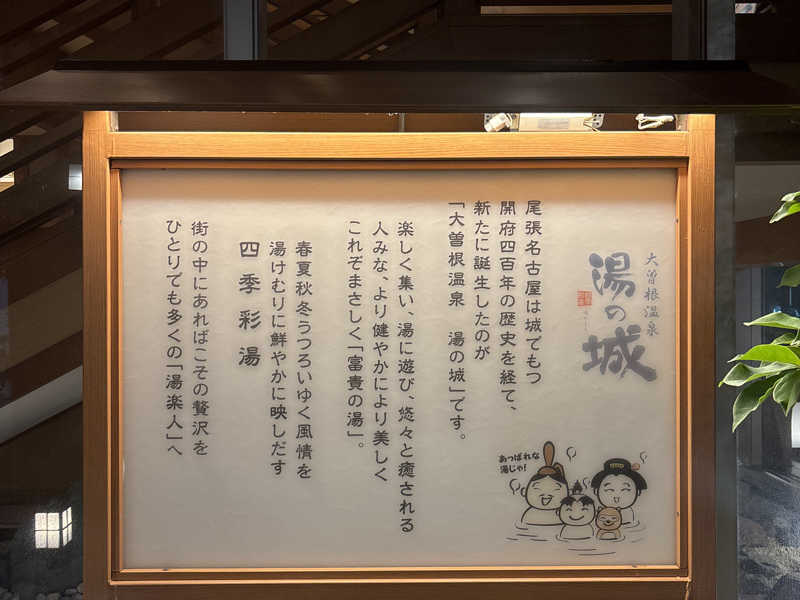 大曽根温泉
湯の城
尾張名古屋は城でもつ
開府四百年の歴史を経て、
新たに誕生したのが
「大曽根温泉　湯の城」です。
楽しく集い、湯に遊び、悠々と癒される
人みな、より健やかにより美しく
これぞまさしく「富貴の湯」。
春夏秋冬うつろいゆく風情を
湯けむりに鮮やかに映しだす
四季彩湯
街の中にあればこその贅沢を
ひとりでも多くの「湯楽人」へ
あっぱれな
湯じゃ!